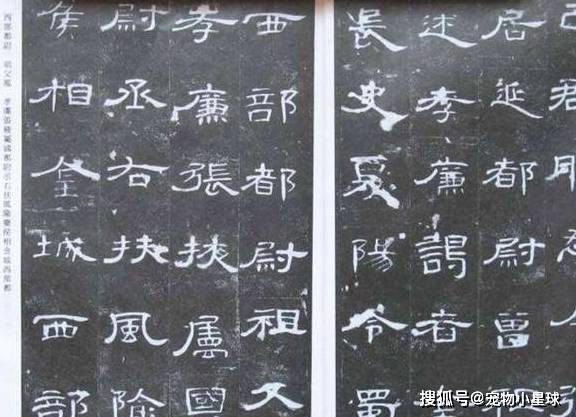 居延都尉曾
述孝廉謁者金
長史夏陽令蜀
西部都尉祖父
孝廉張掖屬國
尉丞右扶風隃
侯相金城西部
西部都尉 祖父鳳 孝廉張掖屬國都尉丞右扶風隃麋侯相金城西部都
搜狐号@宠物小星球